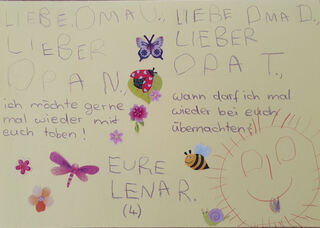 LIEBE OMA U.,
LIEBER
OPA N.,
ich möchte gerne
mal wieder mit
euch toben!
LIEBE OMA D.,
LIEBER
OPA T.,
wann darf ich mal
wieder bei euch
übernachten?
EURE
LENA R.
(4)